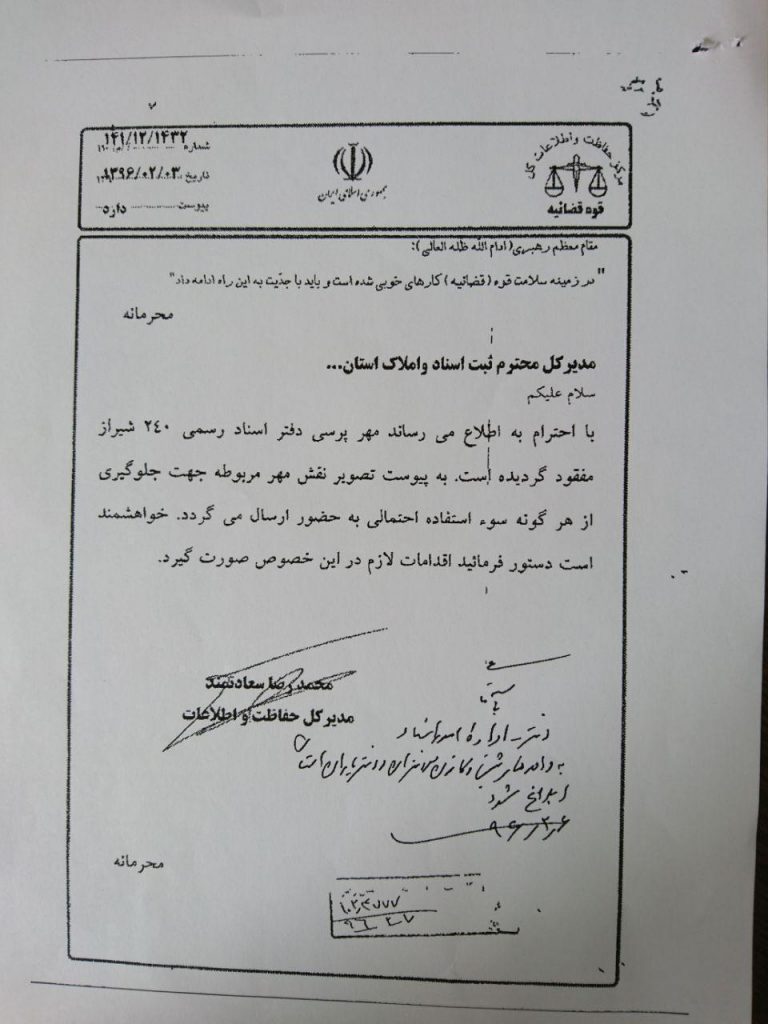 مرکز حفاظت و اطلاعات کل
قوه قضائیه
جمهوری اسلامی ایران
شماره ۱۴۱/۱۲/۱۴۳۲
تاریخ ۱۳۹۶/۰۲/۰۳
پیوست دارد
مقام معظم رهبری (ادام الله ظله العالی):
"در زمینه سلامت قوه (قضائیه) کارهای خوبی شده است و باید با جدّیت به این راه ادامه داد"
محرمانه
مدیرکل محترم ثبت اسناد واملاک استان...
سلام علیکم
با احترام به اطلاع می رساند مهر پرسی دفتر اسناد رسمی ۲۴۰ شیراز
مفقود گردیده است. به پیوست تصویر نقش مهر مربوطه جهت جلوگیری
از هر گونه سوء استفاده احتمالی به حضور ارسال می گردد. خواهشمند
است دستور فرمائید اقدامات لازم در این خصوص صورت گیرد.
محمدرضا سعادتمند
مدیرکل حفاظت و اطلاعات
ابلاغ شود
محرمانه